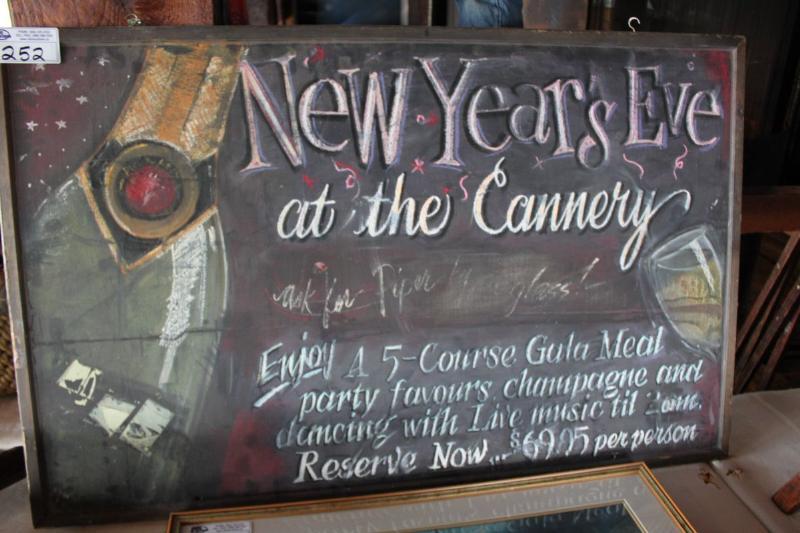 252
New Year's Eve
at the Cannery
ask for Piper by glass!
Enjoy A 5-Course Gala Meal
party favours, champagne and
dancing with Live music til 2am.
Reserve Now... $69.95 per person